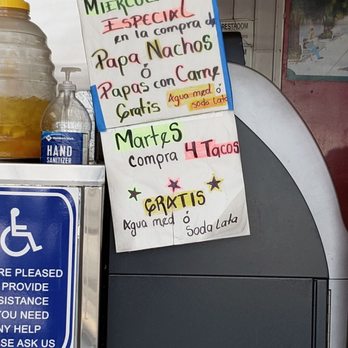 MIERCOLES
ESPECIAL
en la compra de
Papa Nachos
ó
PAPAS con Carne
Gratis Agua med ó
soda lata
Martes
compra 4 Tacos
GRATIS
Agua med ó Soda Lata
RESTROOM
HAND
SANITIZER
RE PLEASED
PROVIDE
SISTANCE
YOU NEED
NY HELP
SE ASK US